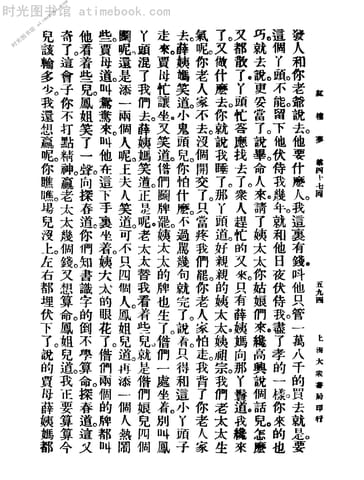 時光图书馆 atimebook.com
紅樓夢 第四十七回 五九四 上海大衆書局印行
發人和你老爺說去他要什麼人我這裏有錢叫他只管一萬八千的買去就是要
這個丫頭不能留下他伏侍我幾年就和他日夜伏侍我盡了孝的一樣你來的也
巧就去說更妥當了說畢命人來請了姨太太你姑娘們來纔高興說個話兒怎麼
又都散了丫頭忙答應找去了衆人趕忙的又來只有薛姨媽向那丫鬟道我纔來
了又做什麼去你就說我睡了那丫頭道好親親的姨太太姨祖宗我們老太太生
氣呢你老人家不去沒個開交了只當疼我們罷你老人家怕走我背了你老人家
去薛姨媽笑道小鬼頭兒你怕什麼不過罵幾句就完了說着只得和這小丫頭子
走來賈母忙讓坐又笑道偺們鬭牌罷姨太太的牌也生了偺們一處坐着別叫鳳
丫頭混了我們去薛姨媽笑道正是呢老太太替我看着些兒就是偺們娘兒四個
鬭呢還是添一兩個人呢王夫人笑道可不只四個人鳳姐兒道再添一個人熱鬧
些賈母道叫鴛鴦來叫他在這下手裏坐着姨太太的眼花了偺們兩個的牌都叫
他看着些兒鳳姐笑了一聲向探春道你們知書識字的倒不學算命探春道這又
奇了這會子你不打點精神贏老太太幾個錢又想算命鳳姐兒道我正要算算今
兒該輸多少我還想贏呢你瞧瞧場兒沒上左右都埋伏下了說的賈母薛姨媽都